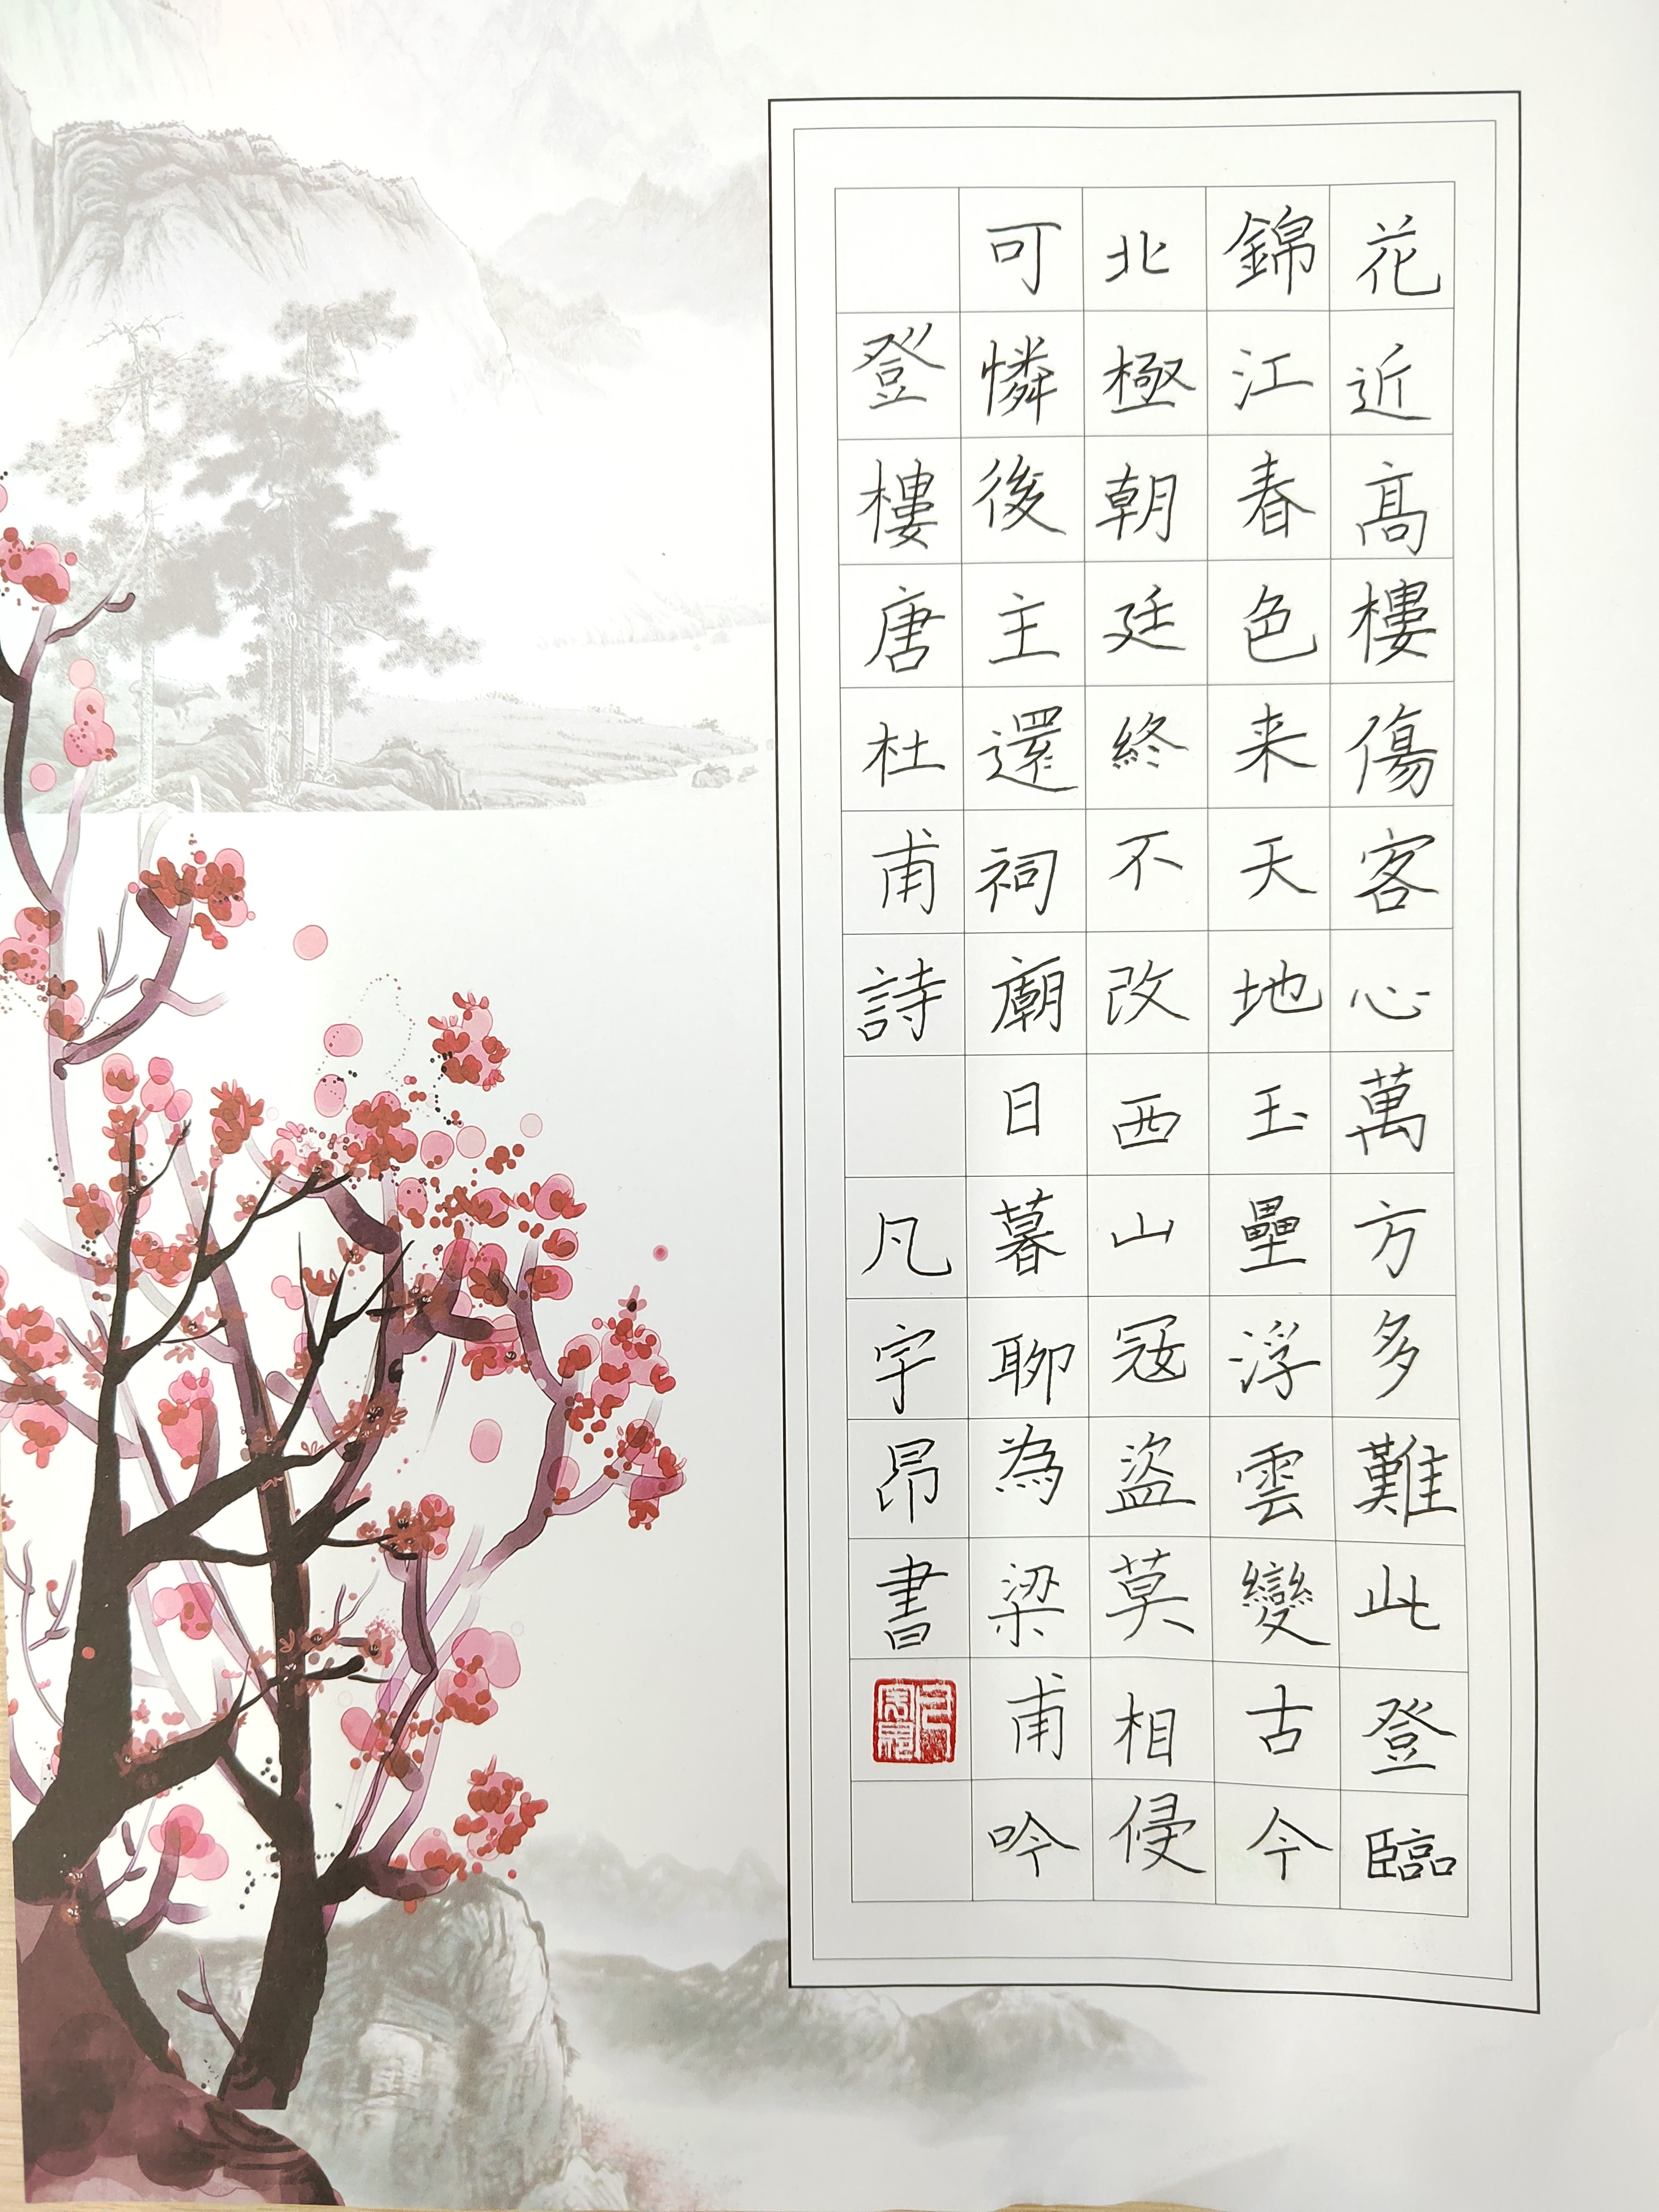 花近高樓傷客心萬方多難此登臨
錦江春色来天地玉壘浮雲變古今
北極朝廷終不改西山冦盜莫相侵
可憐後主還祠廟日暮聊為梁甫吟
登樓唐杜甫詩 凡宇昂書